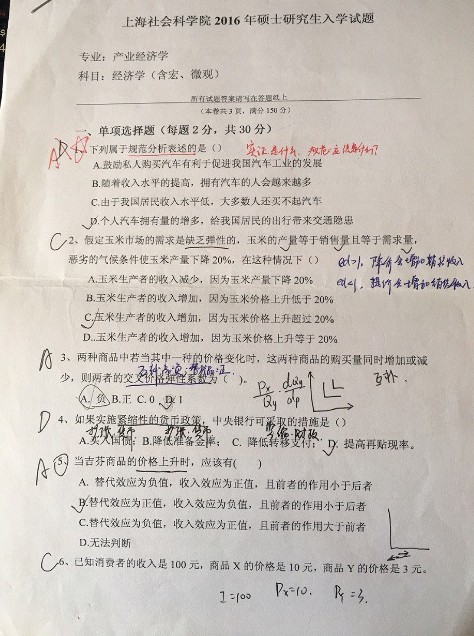 上海社会科学院 2016 年硕士研究生入学试题
专业：产业经济学
科目：经济学（含宏、微观）
所有试题答案请写在答题纸上
（本卷共 3 页，满分 150 分）
一、单项选择题（每题 2 分，共 30 分）
A D 下列属于规范分析表述的是（）
A.鼓励私人购买汽车有利于促进我国汽车工业的发展
B.随着收入水平的提高，拥有汽车的人会越来越多
C.由于我国居民收入水平低，大多数人还买不起汽车
D.个人汽车拥有量的增多，给我国居民的出行带来交通隐患
C 2、假定玉米市场的需求是缺乏弹性的，玉米的产量等于销售量且等于需求量，
恶劣的气候条件使玉米产量下降 20%，在这种情况下（）
A.玉米生产者的收入减少，因为玉米产量下降 20%
B.玉米生产者的收入增加，因为玉米价格上升低于 20%
C.玉米生产者的收入增加，因为玉米价格上升超过 20%
D..玉米生产者的收入增加，因为玉米价格上升等于 20%
A 3、两种商品中若当其中一种的价格变化时，这两种商品的购买量同时增加或减
少，则两者的交叉价格弹性系数为（ ）。 互补
A. 负 B.正 C. 0 D. 1
D 4、如果实施紧缩性的货币政策，中央银行可采取的措施是（）
A.买入国债；B.降低准备金率； C. 降低转移支付； D. 提高再贴现率。
A 5、当吉芬商品的价格上升时，应该有( )
A. 替代效应为负值，收入效应为正值，且前者的作用小于后者
B.替代效应为正值，收入效应为负值，且前者的作用小于后者
C.替代效应为负值，收入效应为正值，且前者的作用大于前者
D.无法判断
C 6、已知消费者的收入是 100 元，商品 X 的价格是 10 元，商品 Y 的价格是 3 元。
I=100 Px=10. Py=3.